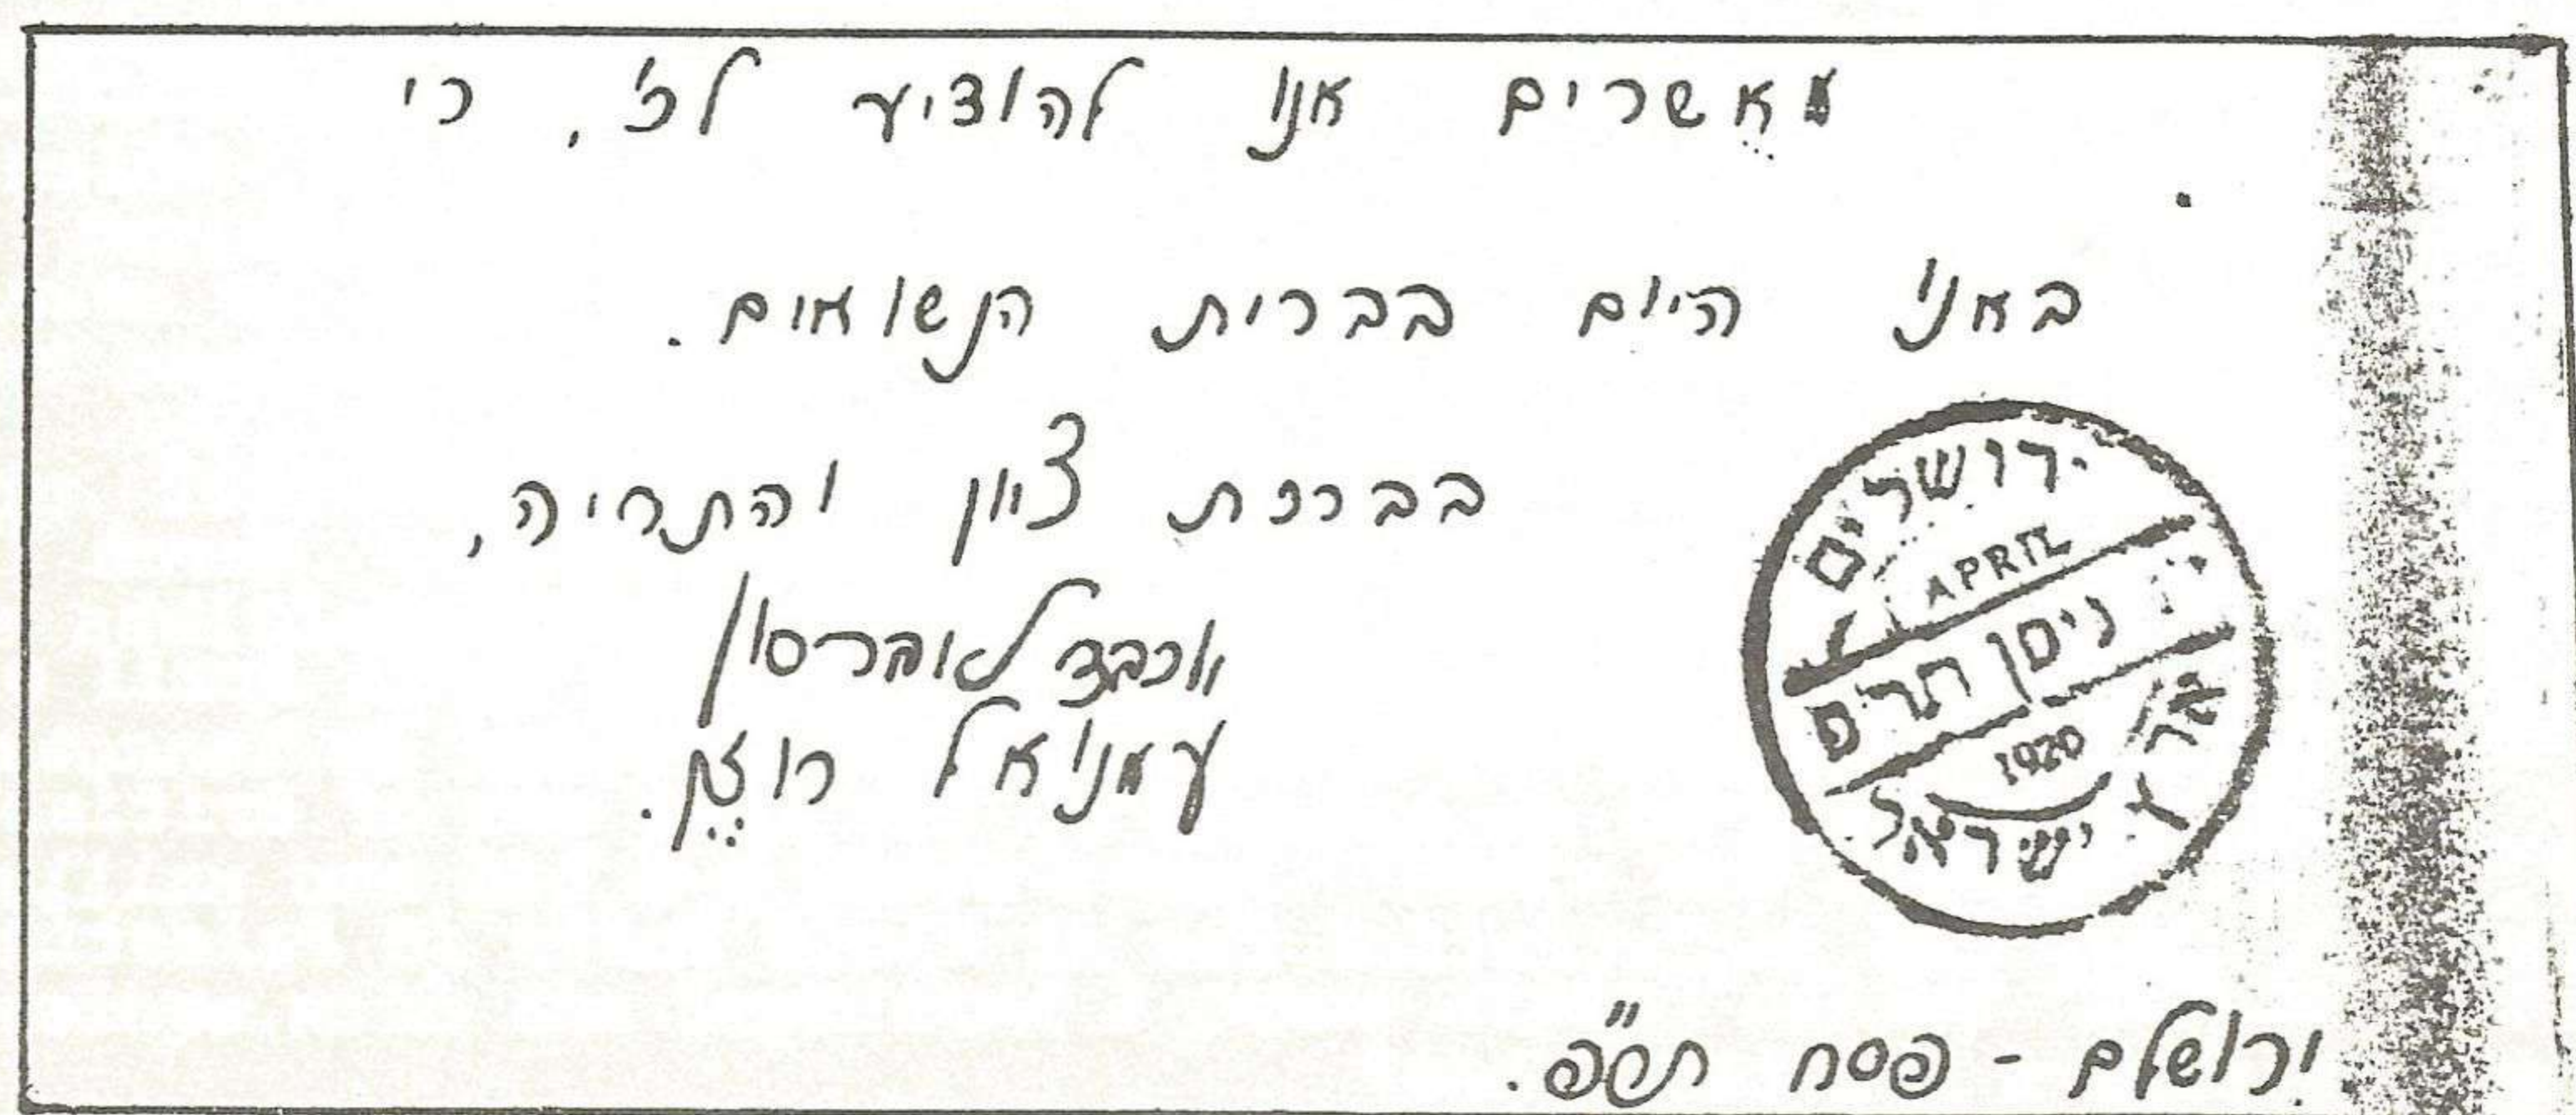 מאֻשרים אנו להודיע לכ', כי
באנו היום בברית הנשואים.
בברכת ציון והתחיה,
יוכבד לאוברסון
עמנואל רוזֶן.
ירושלים
APRIL
ניסן תר״פ
1920
ארץ ישראל
ירושלם - פסח תר״פ.